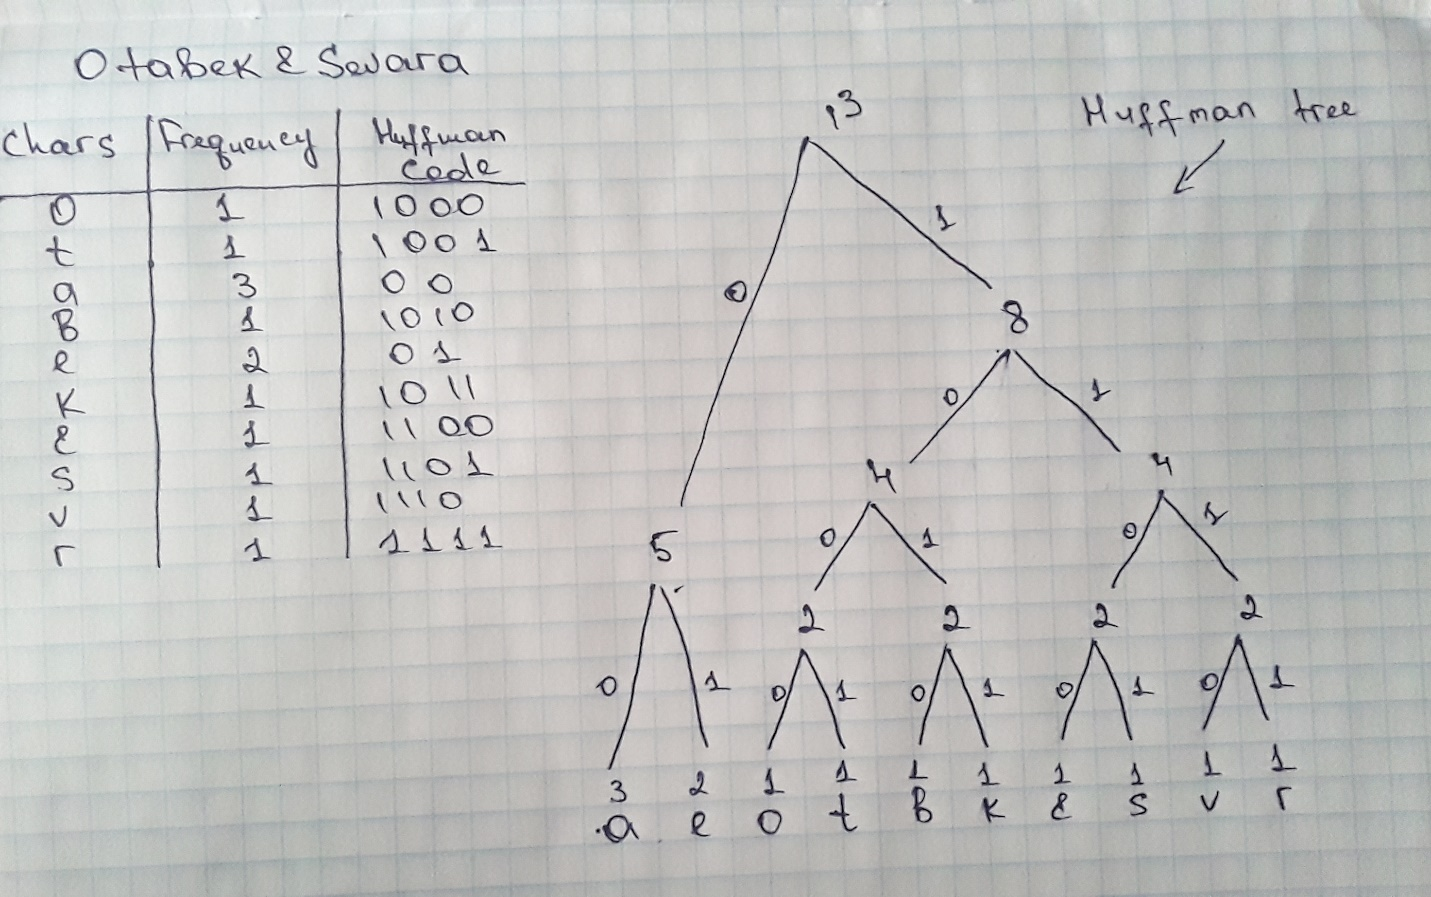 OtaBek & Sevara
Chars Frequency Huffman Code
O 1 1000
t 1 1001
a 3 00
B 1 1010
e 2 01
K 1 1011
& 1 1100
S 1 1101
v 1 1110
r 1 1111
Huffman tree
13
0 1
8
0 1
4 4
0 1 0 1
5
2 2 2 2
0 1 0 1 0 1 0 1 0 1
3 2 1 1 1 1 1 1 1 1
a e O t B K & S v r